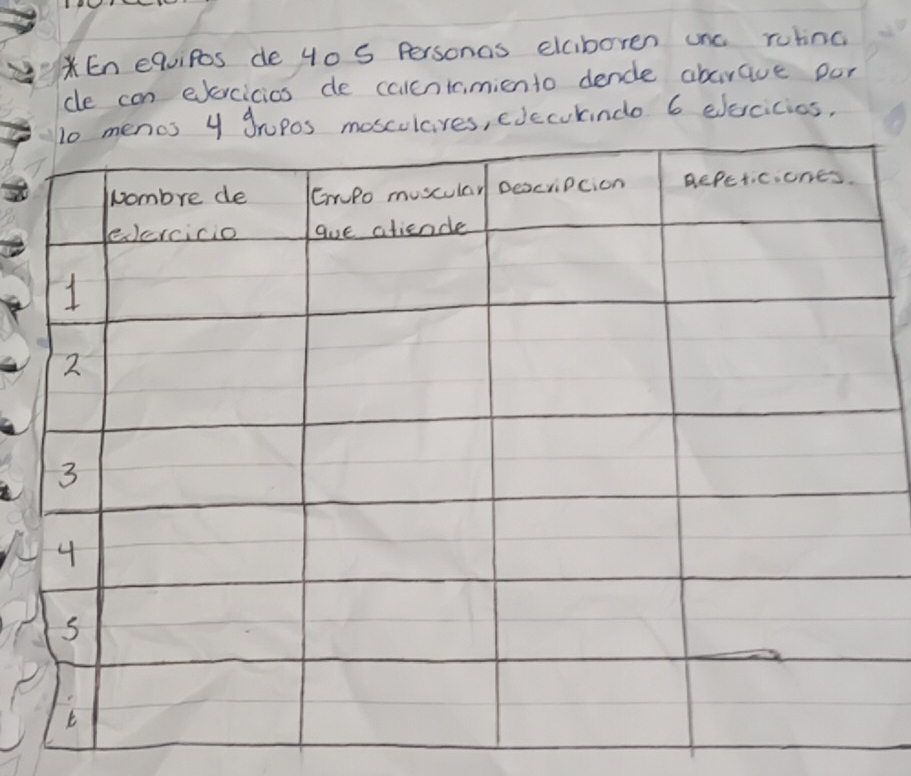 *En equipos de 4 o 5 Personas elaboren una rutina
de con ejercicios de calentamiento dende abarque por
lo menos 4 grupos mosculares, ejecutando 6 ejercicios.
Nombre de ejercicio
Grupo muscular que atiende
Descripcion
Repeticiones.
1
2
3
4
5